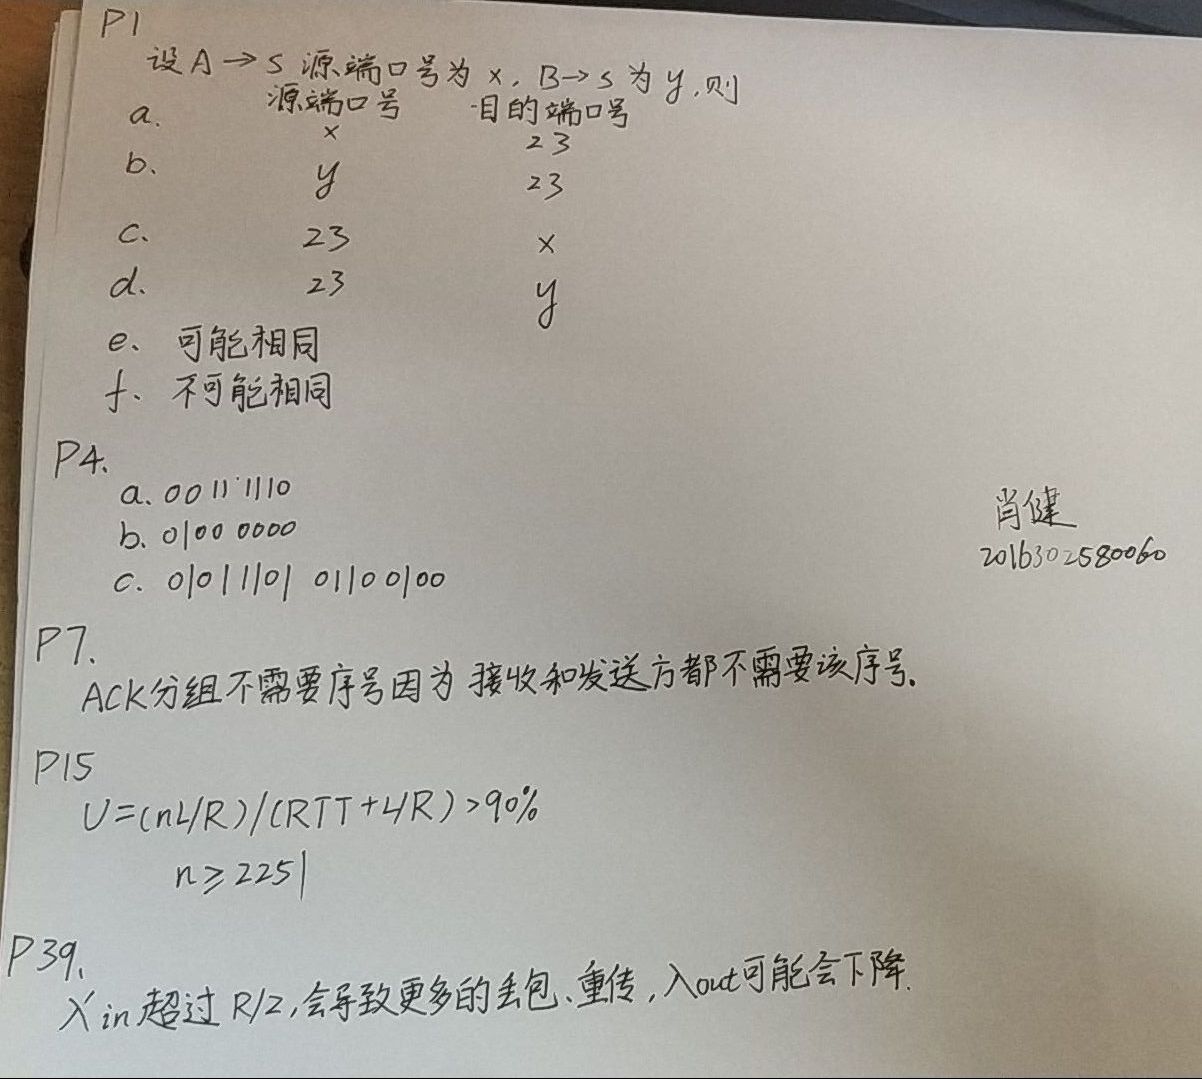 P1
设A→S 源端口号为 x, B→S 为 y,则
源端口号 目的端口号
a. x 23
b. y 23
c. 23 x
d. 23 y
e、可能相同
f、不可能相同
P4.
a. 00111110
b. 0100 0000
c. 01011101 01100100
肖健
2016302580060
P7.
ACK分组不需要序号因为 接收和发送方都不需要该序号.
P15
U=(nL/R)/(RTT+L/R)>90%
n≥2251
P39.
λ'in超过 R/2,会导致更多的丢包、重传,λout可能会下降.